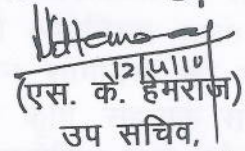 12/4/10
(एस. के. हेमराज)
उप सचिव,